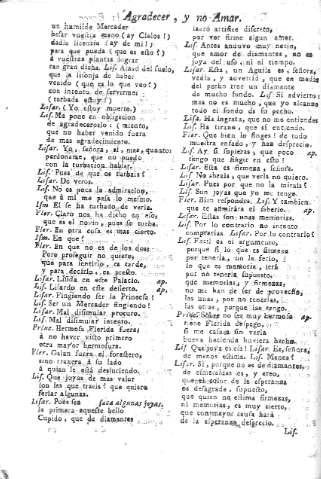 Agradecer, y no Amar.
un humilde Mercader
besar vuestra mano (ay Cielos!)
dadle licencia (ay de mi!)
para que pueda (que es esto?)
à vuestras plantas lograr
tan gran dicha. Lis. Alzad del suelo,
que la lisonja de haber
venido (què es lo que veo?)
con intento de serviros
(turbada estoy!)
Lisar. (Yo estoy muerto.)
Lis. Me pone en obligacion
de agradeceroslo (miento,
que no haber venido fuera
de mas agradecimiento.
Lisar. Yo, señora, si, mas, quanto
perdonente, que no puedo
con la turbacion hablar.
Lis. Pues de què os turbais?
Lisar. De veros.
Lis. No es poca la admiracion,
que à mi me pasa lo mesmo.
Ism. El se ha turbado de verla
Flor. Claro nos ha dicho en eso,
que es el novio, pues se turba.
Flor. En esta no es mas que eso.
Ism. En què?
Flor. En que no es de los dos
Pero proseguir no quiero,
que para sentirlo, es tarde,
y para decirlo, es presto.
Lisar. Lisida en este Palacio. ap.
Lis. Lisardo en este desierto. ap.
Lisar. Fingiendo ser la Princesa!
Lis. Ser un Mercader fingiendo!
Lisar. Mal disimular procuro.
Lis. Mal disimular intento.
Prine. Hermosa Florida fuera;
à no haber visto primero
otra mayor hermosura.
Flor. Galan fuera el forastero,
sino tuviera à su lado
à quien le està desluciendo.
Lis. Què joyas de mas valor
son las que traeis? que quiero
ferlar algunas.
Lisar. Pues sea saca algunas joyas,
la primera aqueste bello
Cupido, que de diamantes
labrò artifice discreto,
por ver firme algun amor.
Lis. Antes anduvo muy necio,
que amor de diamantes, no es
joya del uso, ni el tiempo.
Lisar. Esta, un Aguila es, señora,
vedla, y advertid, que en medio
del pecho trae un diamante
de mucho fondo. Lis. Si advierto;
mas no es mucho, que yo alcanzo
todo el fondo de su pecho.
Lisar. Ha ingrata, que no me entiendes
Lis. Ha tirano, que sì entiendo.
Flor. Què bien lo finges! de todo
muestra enfado, y has desprecio.
Lis. Ay si supieras, que poco ap.
tengo que fingir en esto!
Lisar. Esta es firmeza, señora.
Lis. No abrais, que verla no quiero.
Lisar. Pues por què no la mirais?
Lis. Son joyas que yo no tengo.
Flor. Bien respondes. Lis. Y tambien
que te admiràra el saberlo. ap.
Lisar. Estas son unas memorias.
Lis. Por lo contrario no intento
comprarlas. Lisar. Por lo contrario?
Lis. Facil es el argumento,
porque si lo que es firmeza
por tenerla, un ferio,
lo que es memoria, serà
por no tenerla supuesto,
que memorias, y firmezas,
no me han de ser de provecho,
las unas, por no tenerlas,
las otras, porque las tengo.
Princ. Sobre no ser muy hermosa ap.
tiene Florida despego,
si me casàra sin verla
buena hacienda hubiera hecho.
Lis. Què joya es esta? Lisar. Es, señora,
de menos estima. Lis. Menos?
Lisar. Si, porque no es de diamantes,
de esmeraldas es, y creo,
que el color de la esperanza
os desagrade, supuesto,
que quien no estima firmezas,
ni memorias, es muy cierto,
que con mayor causa harà
de la esperanza desprecio.
Lis.